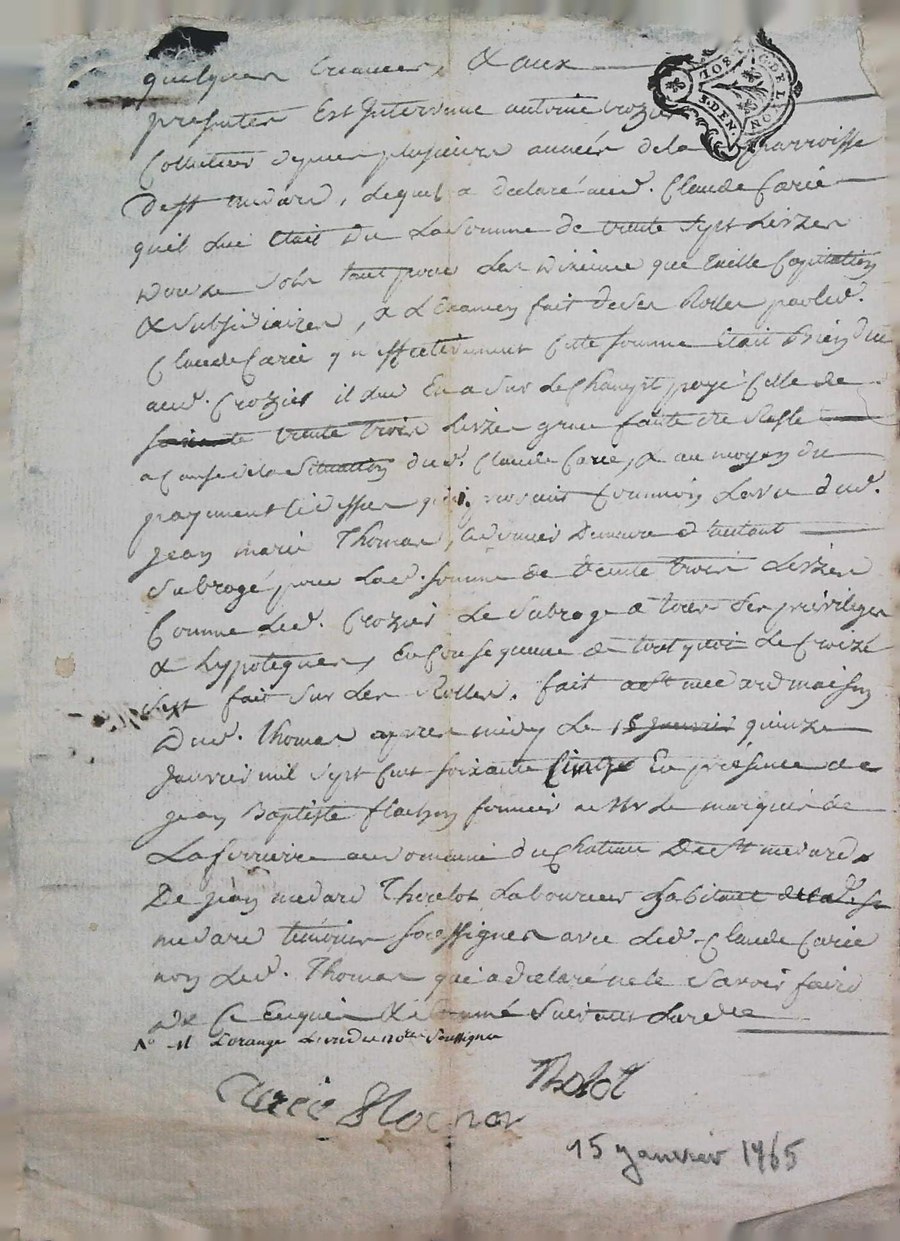 quelques Creances, & aux
presentes Est Intervenu antoine Crozier
Collecteur depuis plusieurs années de la parroisse
de st medard, lequel a declaré aud. Claude Carié
quil luy était Du La Somme de trente Sept Livres
Douze Sols tant pour Les Dixieme que taille Capitation
& Subsidiaires, & L'Examen fait de ses Rolles par led.
Claude Carié y a effectivement Cette somme était bien due
aud. Crozier il luy En a Sur Le Champ payé Celle de
trente trois Livres grace faite du Reste
a Cause de la Situation dud. Claude Carié, & au moyen du
payement Cidessus qui provenant Comme on La vu dud.
Jean marie Thomas, Ce dernier Demeure d'autant
Subrogé pour Lad. somme de trente trois Livres
Comme led. Crozier Le Subroge a tous Ses privileges
& hypoteques, En Consequence de tout quoi Le Croizé
s'est fait Sur Les Rolles. fait a st medard maison
Dud. Thomas apres midy Le quinze
Janvier mil Sept Cent soixante Cinq En présence de
Jean Baptiste flachon fermier de Mr Le marquis de
Laferriere au Domaine du Chateau De st medard &
De Jean medard Thevelot Laboureur habitant dud. st
medard temoins soussignes avec Led. Claude Carié
non Led. Thomas qui a declaré ne le Savoir faire
De Ce Enquis & Sommé Suivant Lordce
Lorange soussigné
Carié Flachon Tholot
15 janvier 1765
G. DE LYON